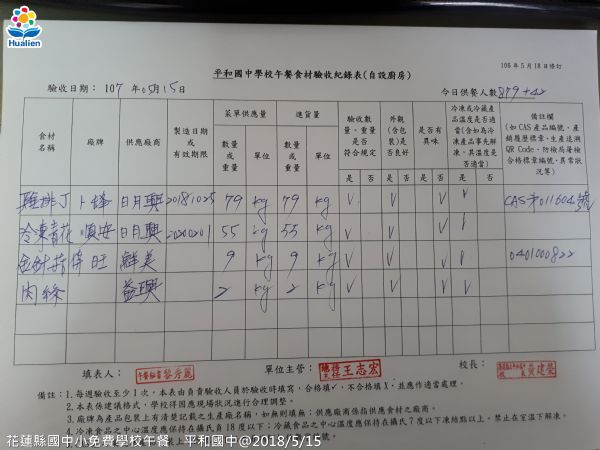 Hualien
106 年 5 月 18 日修訂
平和國中學校午餐食材驗收紀錄表(自設廚房)
驗收日期： 107 年 05月 15日
今日供餐人數 879+42
食材名稱 廠牌 供應廠商 製造日期或有效期限 菜單供應量 進貨量 驗收數量、重量是否符合規定 外觀(含包裝)是否良好 是否有異味 冷凍或冷藏產品溫度是否適當(含如為冷凍產品事先解凍，其溫度是否適當) 備註欄(如 CAS 產品編號、產銷履歷標章、生產追溯 QR Code、防檢局屠檢合格標章編號、異常狀況等)
數量或重量 單位 數量或重量 單位 是 否 是 否 是 否 是 否
雞排丁 卜蜂 日月興 20181025 79 kg 79 kg ✓ ✓ ✓ ✓ CAS 011604號
冷凍青花 順安 日月興 20200201 55 kg 55 kg ✓ ✓ ✓ ✓
金針菇 旺 鮮美 9 kg 9 kg ✓ ✓ ✓ 0401000822
肉絲 益興 2 kg 2 kg ✓ ✓ ✓ ✓
填表人： 午餐秘書黎秀麗 單位主管： 王志宏 校長： 黃建榮
備註：1.每週驗收至少 1 次，本表由負責驗收人員於驗收時填寫，合格填✓，不合格填 X，並應作適當處理。
2.本表係建議格式，學校得因應現場狀況進行合理調整。
3.廠牌為產品包裝上有清楚記載之生產廠名稱，如無則填無；供應廠商係指供應食材之廠商。
4.冷凍食品之中心溫度應保持在攝氏負 18 度以下；冷藏食品之中心溫度應保持在攝氏 7 度以下凍結點以上。禁止在室溫下解凍。
花蓮縣國中小免費學校午餐　平和國中@2018/5/15